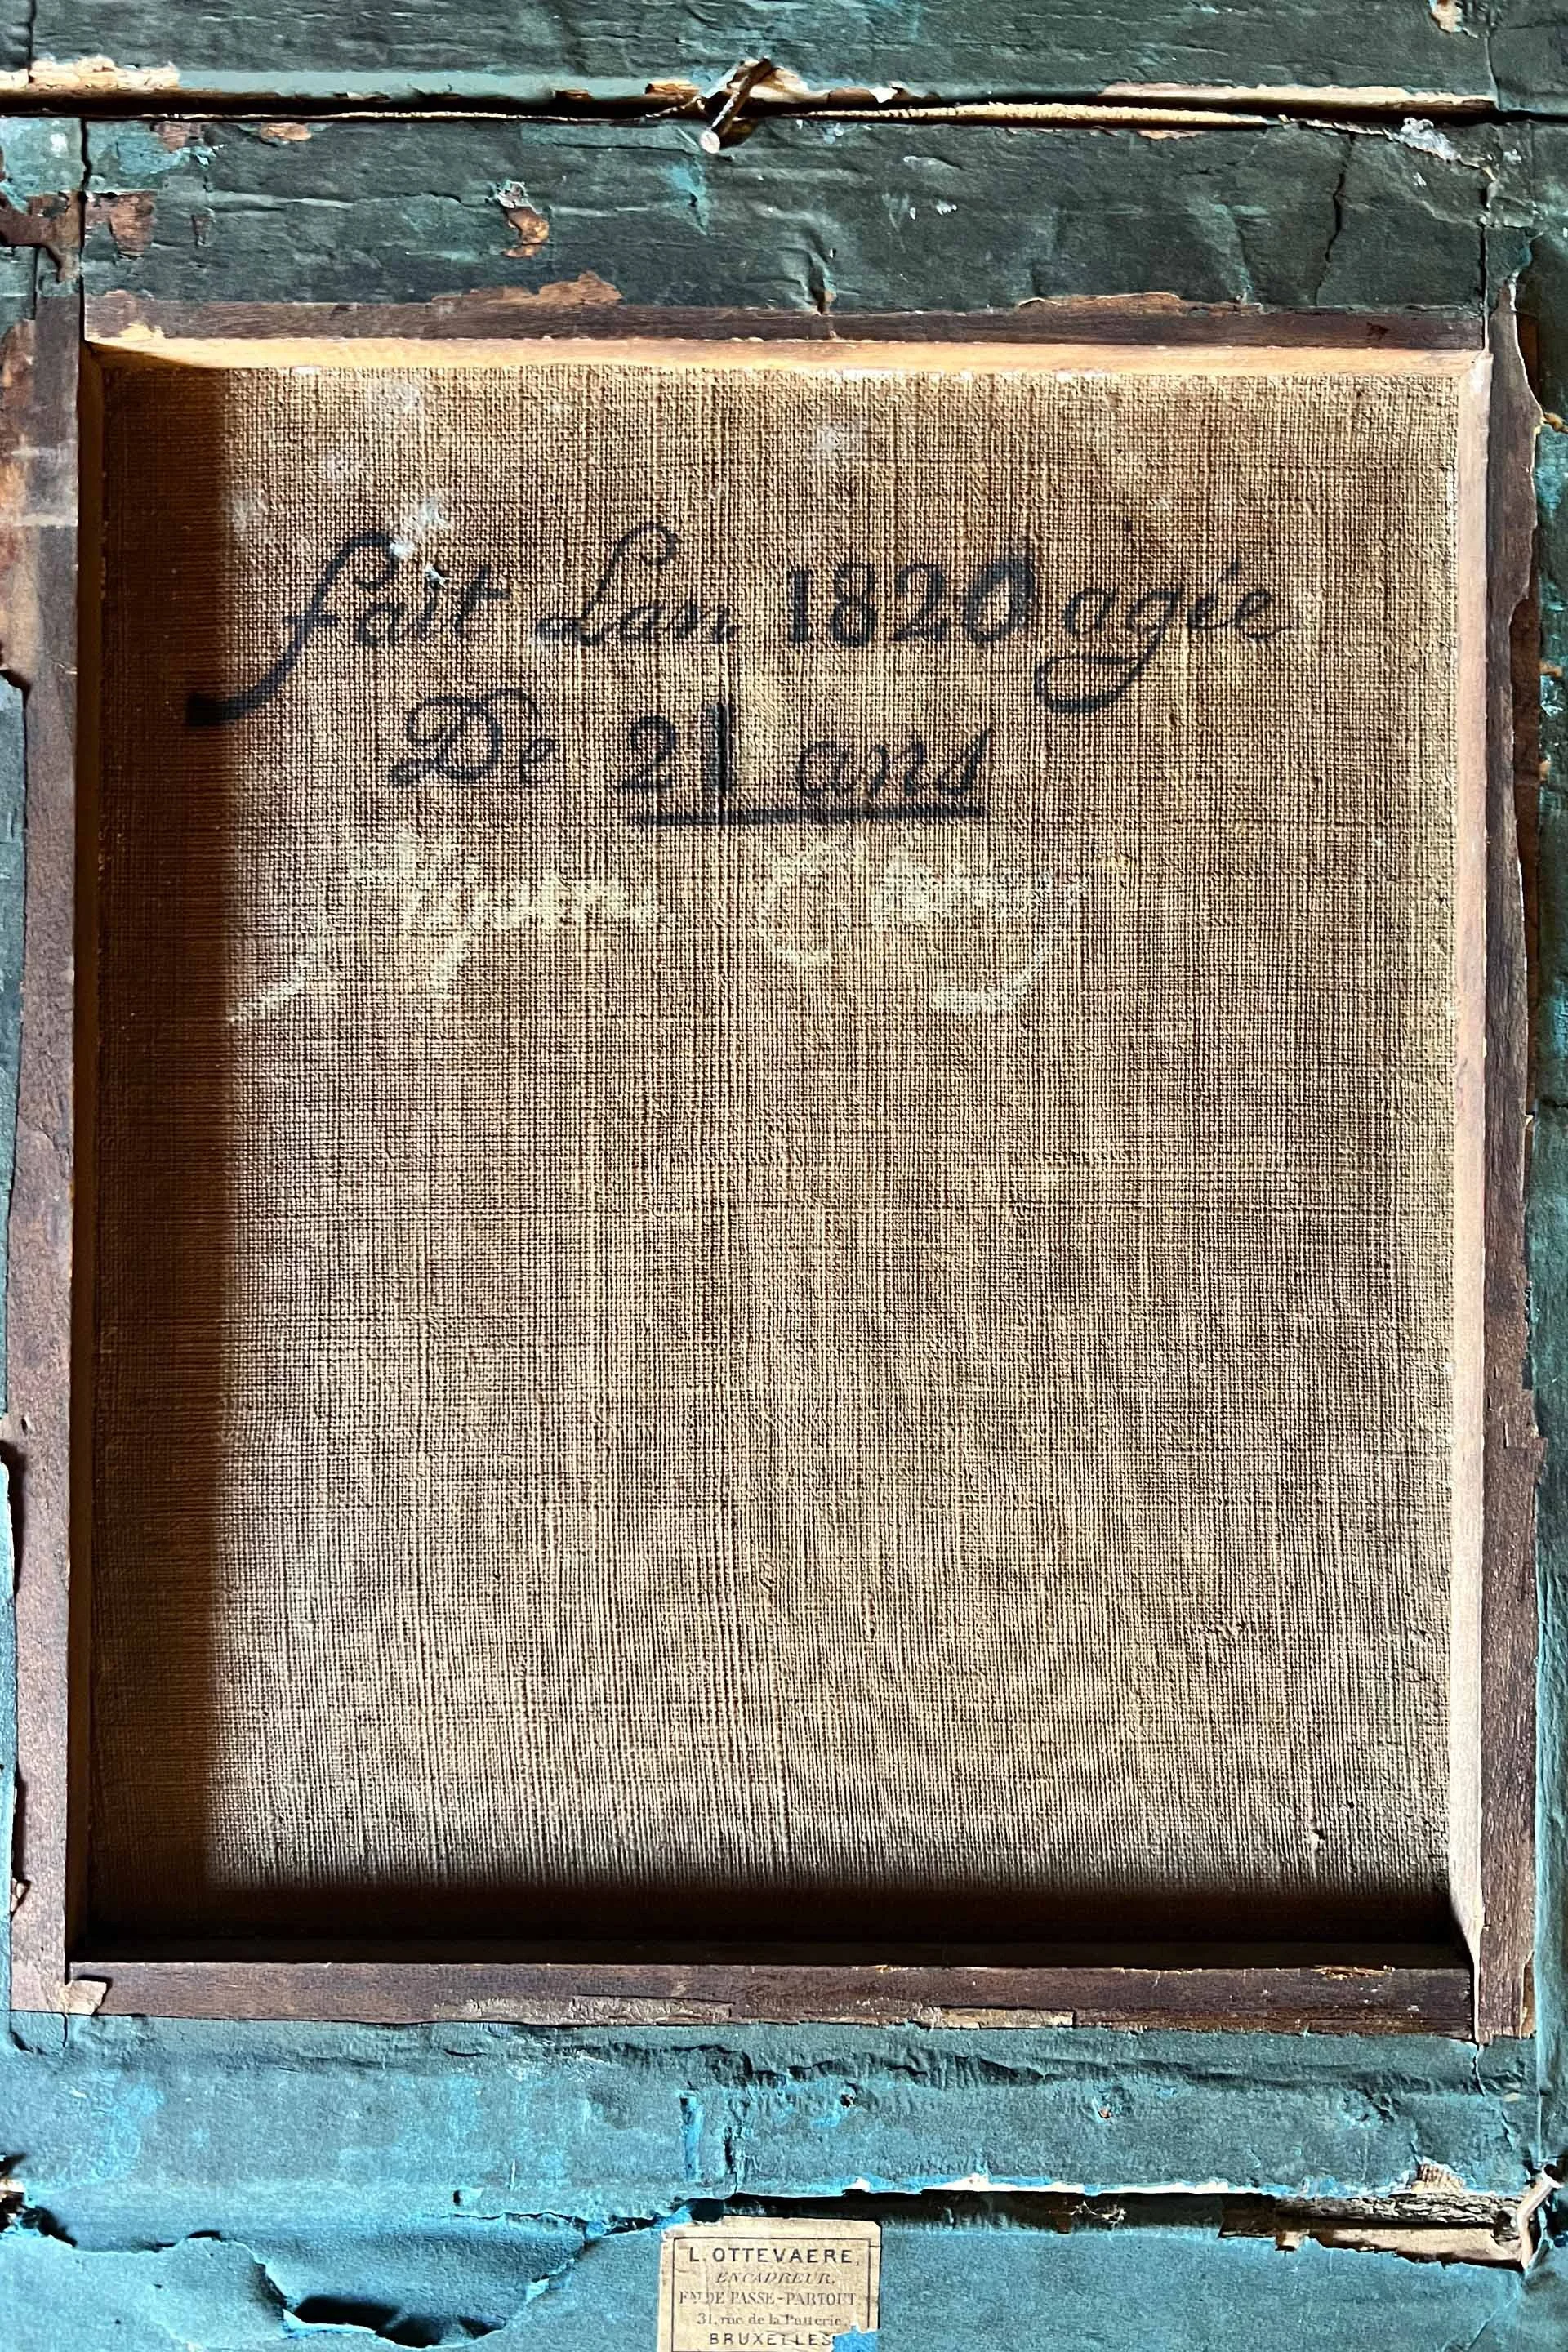 fait Lan 1820 agée
De 21 ans
L. OTTEVAERE,
ENCADREUR,
FNDE PASSE-PARTOUT
31, rue de la Putterie,
BRUXELLES